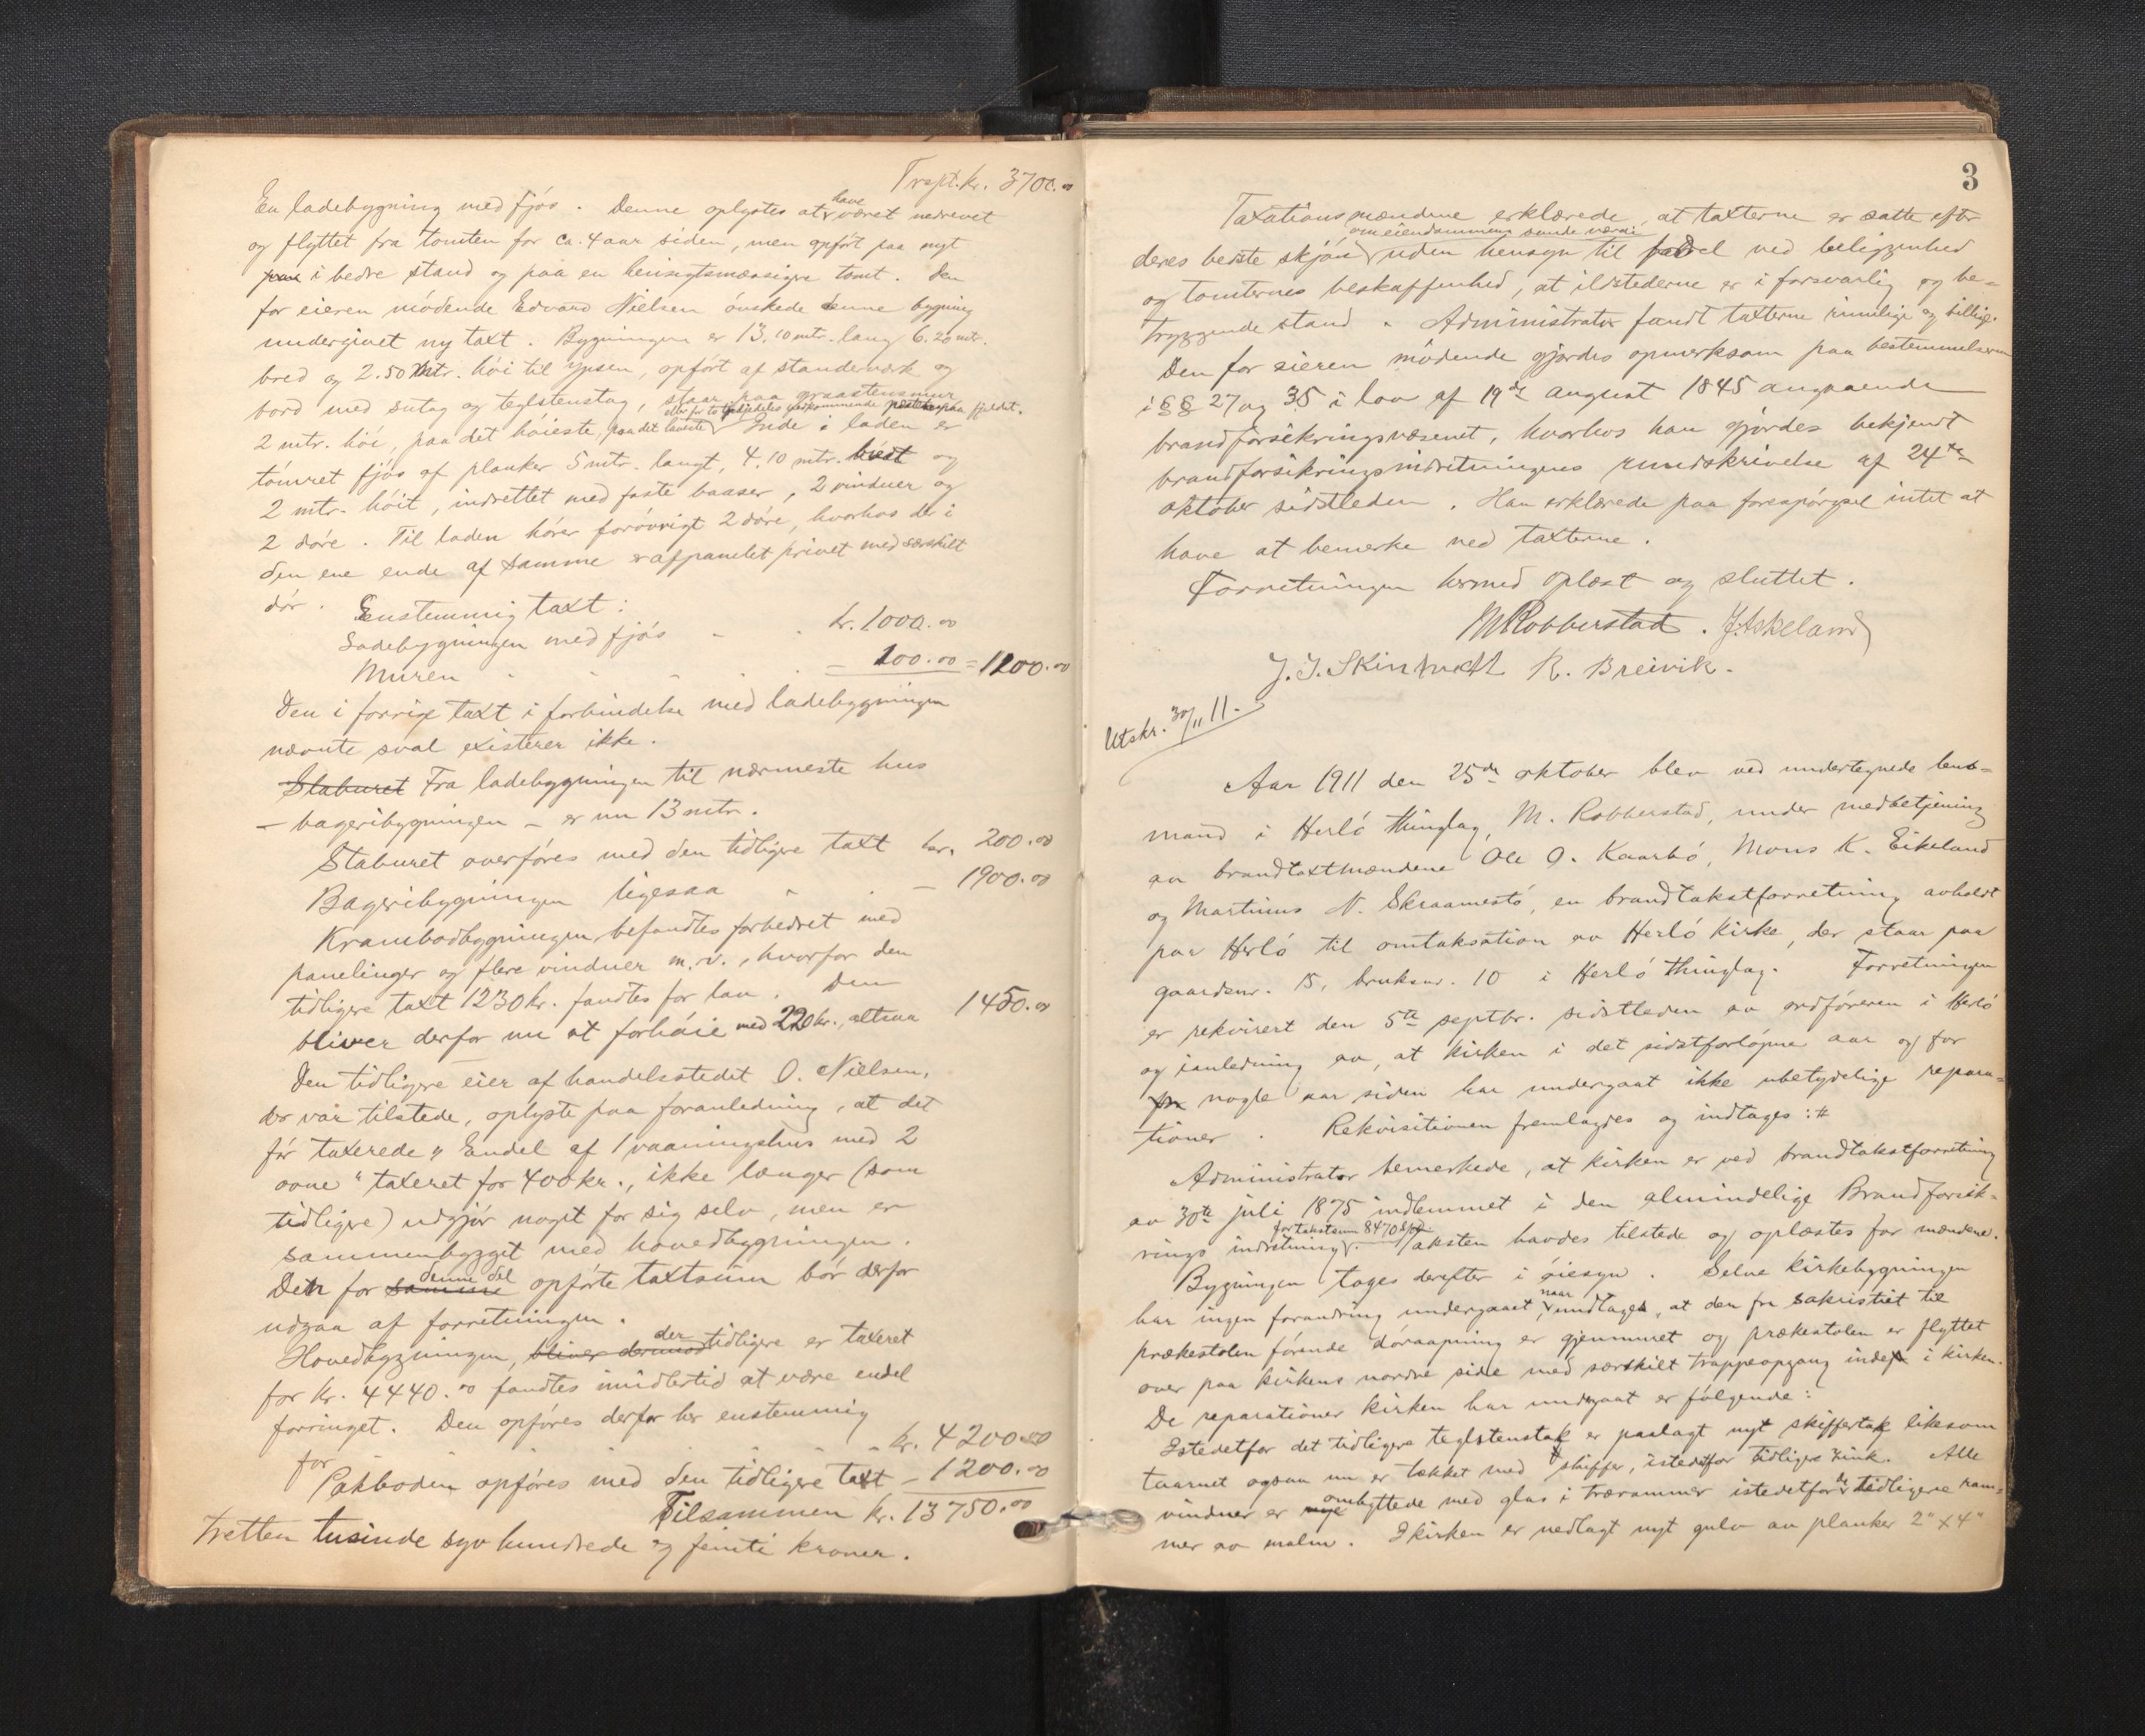 Trspt. kr. 3700.00
En ladebygning med fjós. Denne oplystes at have været nedrevet
og flyttet fra tomten for ca. 4 aar siden, men opfört paa nyt
i bedre stand og paa en hensigtsmæssigere tomt. Den
for eieren mödende Edvard Nielsen önskede denne bygning
undergivet ny taxt. Bygningen er 13.10 mtr. lang 6.20 mtr.
bred og 2.50 mtr. hói til Ypsen, opfört af standerværk og
bord med sutag og teglstenstag, staar paa graastensmur
2 mtr. hói, paa det hóieste, paa det laveste eller for to paa fjeldet. Inde i laden er
tómret fjós af planker 5 mtr. langt, 4.10 mtr. bredt og
2 mtr. hóit, indrettet med faste baaser, 2 vinduer og
2 dóre. Til laden hórer foróvrigt 2 dóre, hvorhos der i
den ene ende af samme er afpanelet privet med særskilt
dór. Enstemmig taxt:
Ladebygningen med fjós - - kr. 1000.00
Muren - - - - - 200.00 = 1200.00
Den i forrige taxt i forbindelse med ladebygningen
nævnte sval existerer ikke.
Staburet Fra ladebygningen til nærmeste hus
- bageribygningen - er nu 13 mtr.
Staburet overfóres med den tidligere taxt kr. 200.00
Bageribygningen ligesaa - - - 1900.00
Krambodbygningen befandtes forbedret med
panelinger og flere vinduer m.v., hvorfor den
tidligere taxt 1230 kr. fandtes for lav. Den
bliver derfor nu at forhóie med 220 kr., altsaa 1450.00
Den tidligere eier af handelsstedet O. Nielsen,
der var tilstede, oplyste paa foranledning, at det
fór taxerede "Endel af 1 vaaningshus med 2
ovne" taxeret for 400 kr., ikke længer (som
tidligere) udgjór noget for sig selv, men er
sammenbygget med hovedbygningen.
Den for samme denne del opfórte taxtsum bór derfor
udgaa af forretningen.
Hovedbygningen, bliver dermod der tidligere er taxeret
for kr. 4440.00 fandtes imidlertid at være endel
forringet. Den opfóres derfor her enstemmig
for - - - kr. 4200.00
Pakboden opfóres med den tidligere taxt - 1200.00
Tilsammen kr. 13750.00
tretten tusinde syv hundrede og femti kroner.
3
Taxationsmændene erklærede, at taxterne er satte efter
deres bedste skjón om eiendommens sande værdi uden hensyn til fordel ved beliggenhed
og tomternes beskaffenhed, at ildstederne er i forsvarlig og be-
tryggende stand. Administrator fandt taxterne rimelige og billige.
Den for eieren módende gjordes opmerksom paa bestemmelserne
i §§ 27 og 35 i lov af 19de august 1845 angaaende
brandforsikringsvæsenet, hvorhos han gjordes bekjendt
brandforsikringsindretningens rundskrivelse af 24de
oktober sidstleden. Han erklærede paa forespórgsel intet at
have at bemerke ved taxterne.
Forretningen hermed oplæst og sluttet.
M Robberstad. J. Askeland
J. J. Skinhvedt R. Breivik.
Utskr. 30/11 11.
Aar 1911 den 25de oktober blev ved undertegnede lens-
mand i Herló thinglag, M. Robberstad, under medbetjening
av brandtaxtmændene Ole O. Kaarbó, Mons K. Eikeland
og Martinus N. Skraamestó, en brandtakstforretning avholdt
paa Herló til omtaksation av Herló kirke, der staar paa
gaardsnr. 15, bruksnr. 10 i Herló thinglag. Forretningen
er rekvirert den 5te septbr. sidstleden av ordfóreren i Herló
og ianledning av, at kirken i det sidstforlópne aar og for
for nogle aar siden har undergaat ikke ubetydelige repara-
tioner. Rekvisitionen fremlagdes og indtages: #
Administrator bemerkede, at kirken er ved brandtakstforretning
av 30te juli 1875 indlemmet i den almindelige Brandforsik-
rings indretning for takstsum 8470 Spd. Taksten havdes tilstede og oplæstes for mændene.
Bygningen toges derefter i óiesyn. Selve kirkebygningen
har ingen forandring undergaaet, naar undtages, at den fra sakristiet til
prækestolen fórende dóraapning er gjenmuret og prækestolen er flyttet
over paa kirkens nordre side med særskilt trappeopgang inde i kirken.
De reparationer kirken har undergaat er fólgende:
Istedetfor det tidligere teglstenstak er paalagt nyt skiffertak liksom
taarnet ogsaa nu er tækket med skiffer, istedetfor tidligere zink. Alle
vinduer er nye ombyttede med glas i trærammer istedetfor de tidligere ram-
mer av malm. I kirken er nedlagt nyt gulv av planker 2" x 4"